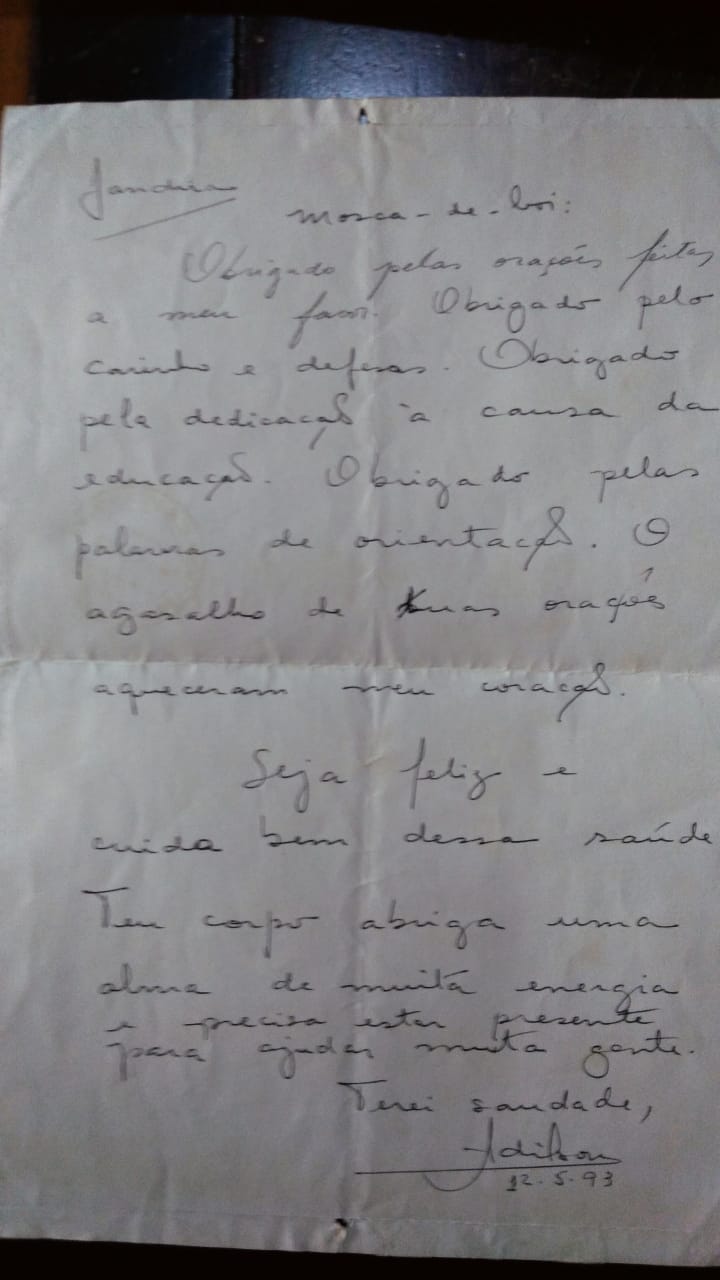 Jandira
Mosca-de-boi:
Obrigado pelas orações feitas
a meu favor. Obrigado pelo
carinho e defesas. Obrigado
pela dedicação à causa da
educação. Obrigado pelas
palavras de orientação. O
agasalho de tuas orações
aqueceram meu coração.
Seja feliz e
cuida bem dessa saúde
Teu corpo abriga uma
alma de muita energia
e precisa estar presente
para ajudar muita gente.
Terei saudade,
Adilson
12.5.93